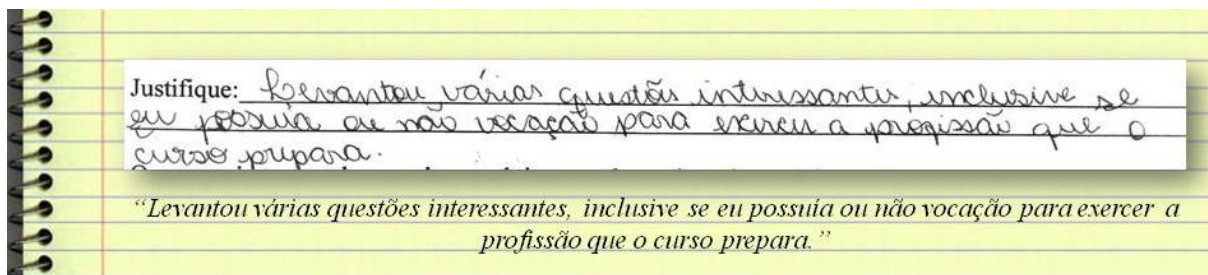 Justifique: Levantou várias questões interessantes, inclusive se
eu possuia ou não vocação para exercer a profissão que o
curso prepara.
“Levantou várias questões interessantes, inclusive se eu possuía ou não vocação para exercer a
profissão que o curso prepara.”